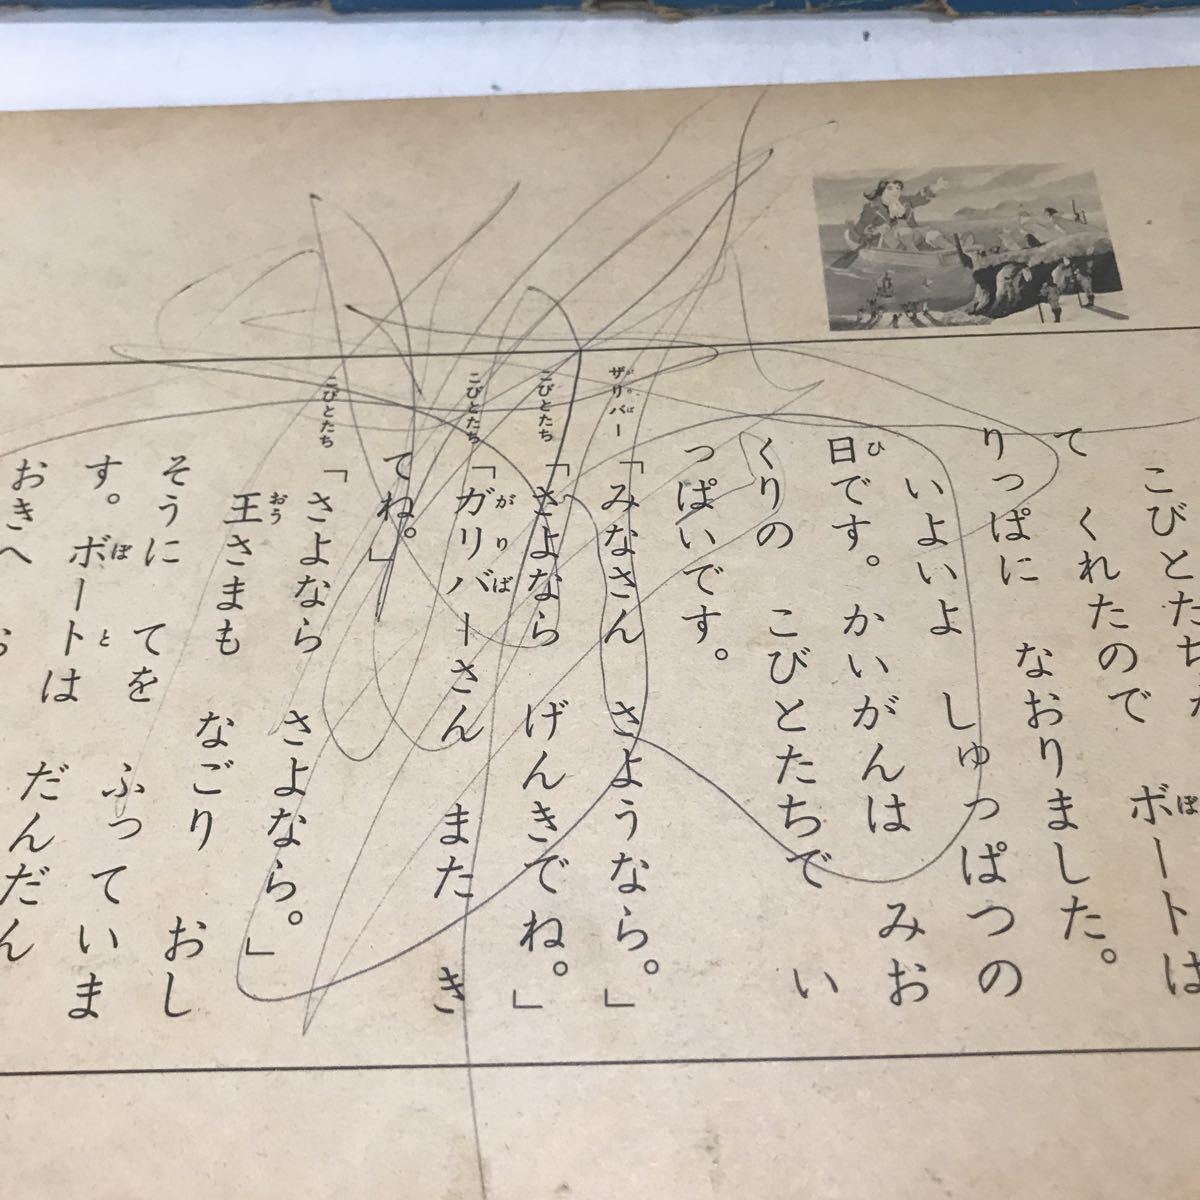 こびとたち
て くれたので ボートは
りっぱに なおりました。
いよいよ しゅっぱつの
日です。かいがんは みお
くりの こびとたちで い
っぱいです。
ザリバー「みなさん さようなら。」
こびとたち「さよなら げんきでね。」
こびとたち「ガリバーさん また き
てね。」
こびとたち「さよなら さよなら。」
王さまも なごり おし
そうに てを ふっていま
す。ボートは だんだん
おきへ